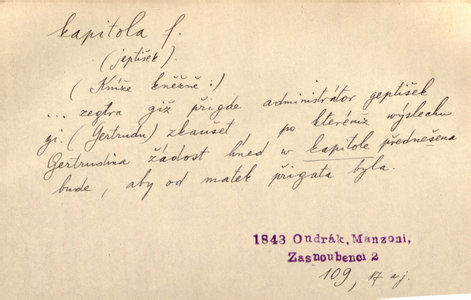 kapitola f.
(jeptišek).
(Kníže kněžně:)
... zegtra giž přigde administrátor jeptišek
gi (Gertrudu) zkaušet, po kterémž wýslechu
Gertrudina žádost hned w kapitole přednešena
bude, aby od matek přigata byla.
1843 Ondrák, Manzoni,
Zasnoubenci 2
109, 17 a j.